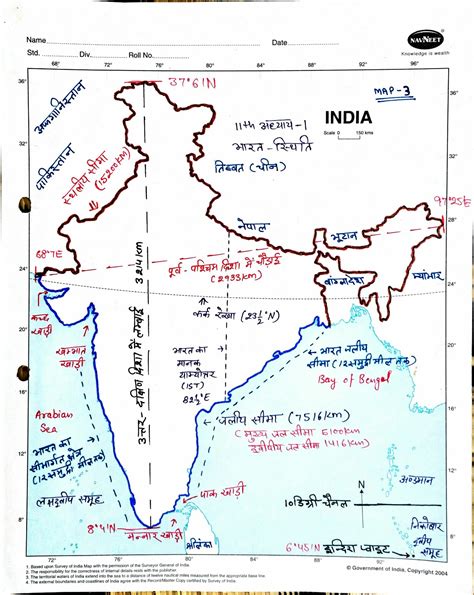 Name
Date
NAVNEET
Knowledge is wealth
Std.
Div.
Roll No.
68° 72° 76° 80° 88° 92° 96°
37°6'N
MAP-3
36°
36°
अफगानिस्तान
INDIA
Scale 0 150 kms
11th अध्याय-1
भारत-स्थिति
तिब्बत (चीन)
पाकिस्तान
स्थलीय सीमा
(15200km)
32°
32°
97°25'E
नेपाल
भूटान
28°
28°
68°7'E
पूर्व-पश्चिम दिशा में चौड़ाई
(2933km)
म्यांमार
बांग्लादेश
24°
24°
कर्क रेखा (23½°N)
उत्तर-दक्षिण दिशा में लम्बाई
3214km
कच्छ
खाड़ी
खम्भात
खाड़ी
भारत का
मानक
याम्योत्तर
(IST)
82½°E
भारत जलीय
सीमा (12समुद्री मील तक)
Bay of Bengal
20°
Arabian
Sea
जलीय सीमा (7516km)
(मुख्य जल सीमा 6100km
द्वीपीय जल सीमा 1416km)
16°
भारत का
सीमागत क्षेत्र
(12समुद्री मील तक)
लक्षद्वीप समूह
पाक खाड़ी
अण्डमान
N
10डिग्री चैनल
12°
निकोबार
द्वीप समूह
8°4'N
मन्नार खाड़ी
श्रीलंका
6°45'N इन्दिरा प्वाइंट
8°
© Government of India, Copyright 2004
1. Based upon Survey of India Map with the permission of the Surveyor General of India.
2. The responsibility for the correctness of internal details rests with the publisher.
3. The territorial waters of India extend into the sea to a distance of twelve nautical miles measured from the appropriate base line.
4. The external boundaries and coastlines of India agree with the Record/Master Copy certified by Survey of India.